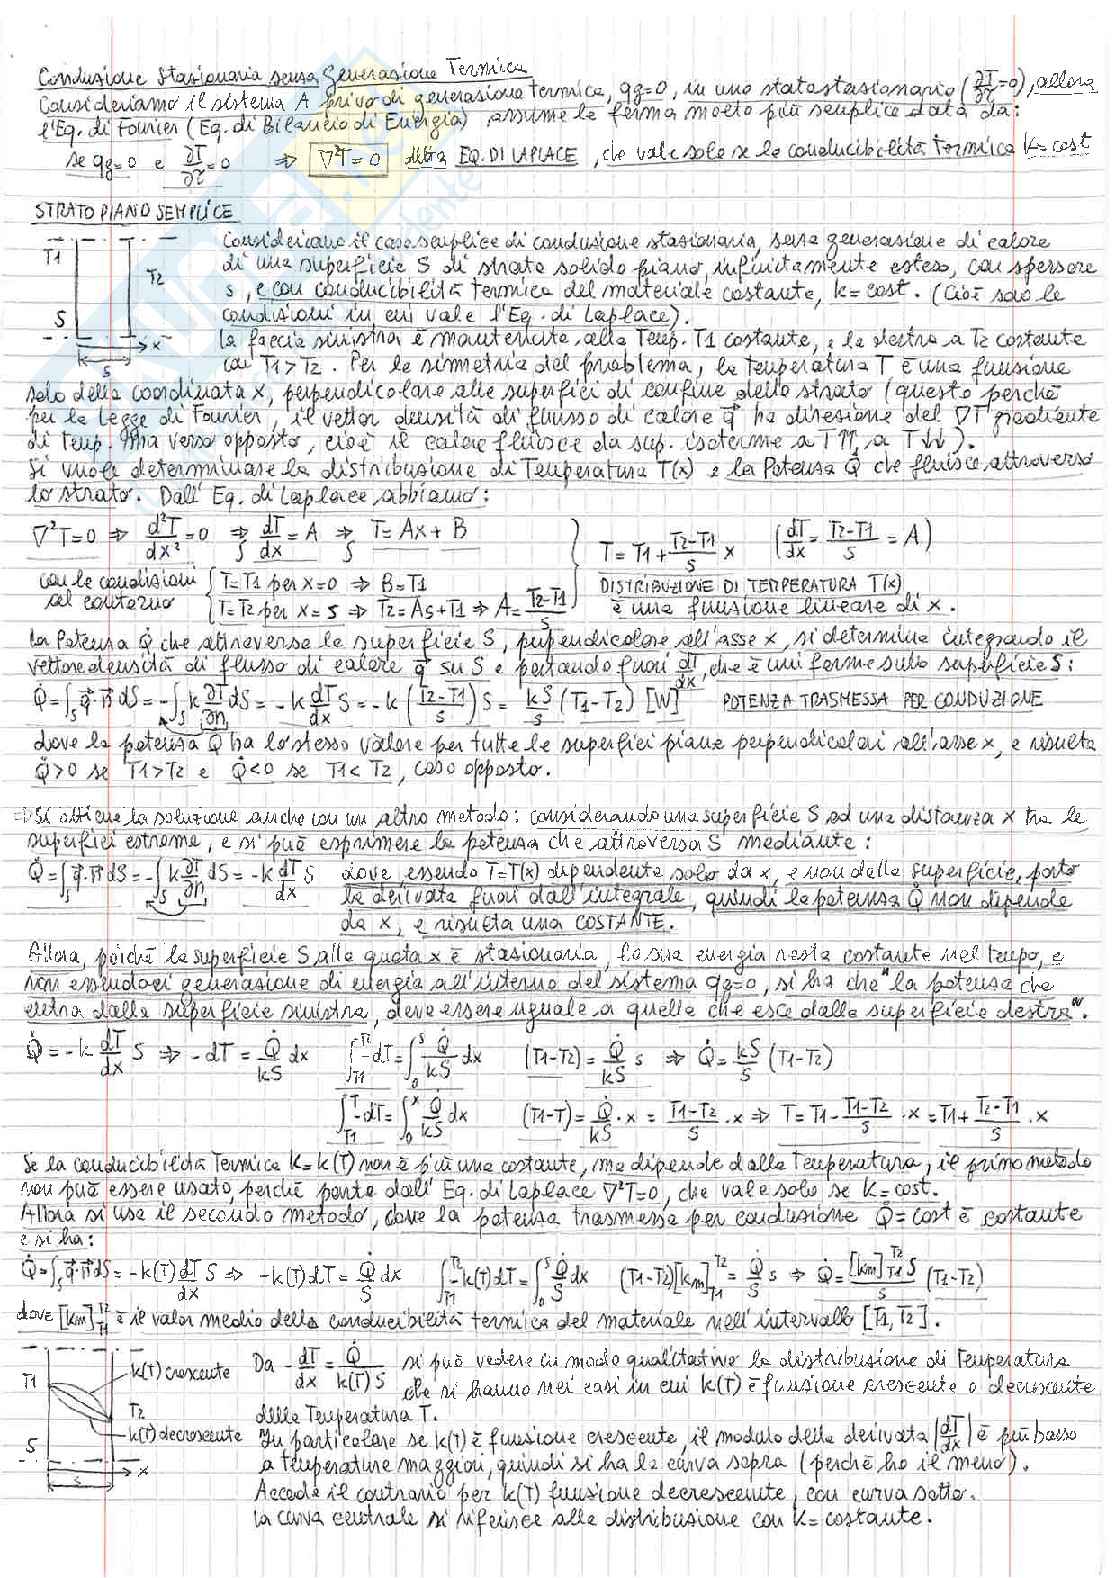 Conduzione Stazionaria senza Generazione Termica
Consideriamo il sistema A privo di generazione termica, qg=0, in uno stato stazionario (∂T/∂τ=0), allora
l'Eq. di Fourier (Eq. di Bilancio di Energia) assume la forma molto più semplice data da:
se qg=0 e ∂T/∂τ=0 ⇒ ∇²T=0 detta EQ. DI LAPLACE, che vale solo se la conducibilità termica K=cost
STRATO PIANO SEMPLICE
Consideriamo il caso semplice di conduzione stazionaria, senza generazione di calore
T1
di una superficie S di strato solido piano, infinitamente esteso, con spessore
T2
s, e con conducibilità termica del materiale costante, k=cost. (Cioè solo le
S
condizioni in cui vale l'Eq. di Laplace).
x
La faccia sinistra è mantenuta alla Temp. T1 costante, e la destra a T2 costante
s
con T1>T2. Per la simmetria del problema, la temperatura T è una funzione
solo della coordinata x, perpendicolare alle superfici di confine dello strato (questo perché
per la legge di Fourier, il vettor densità di flusso di calore q⃗ ha direzione del ∇T gradiente
di temp. ma verso opposto, cioè il calore fluisce da sup. isoterme a T↑↑, a T↓↓).
Si vuole determinare la distribuzione di Temperatura T(x) e la Potenza Q̇ che fluisce attraverso
lo strato. Dall'Eq. di Laplace abbiamo:
∇²T=0 ⇒ d²T/dx²=0 ⇒∫ dT/dx=A ⇒∫ T=Ax+B
T=T1+(T2-T1)/s x (dT/dx=(T2-T1)/s=A)
con le condizioni al contorno { T=T1 per x=0 ⇒ B=T1
T=T2 per x=s ⇒ T2=As+T1 ⇒ A=(T2-T1)/s
DISTRIBUZIONE DI TEMPERATURA T(x)
è una funzione lineare di x.
La Potenza Q̇ che attraversa la superficie S, perpendicolare all'asse x, si determina integrando il
vettore densità di flusso di calore q⃗ su S e portando fuori dT/dx, che è uniforme sulla superficie S:
Q̇=∫S q⃗·n⃗ dS=-∫S k ∂T/∂n dS=-k dT/dx S=-k((T2-T1)/s)S=kS/s (T1-T2) [W] POTENZA TRASMESSA PER CONDUZIONE
dove la potenza Q̇ ha lo stesso valore per tutte le superfici piane perpendicolari all'asse x, e risulta
Q̇>0 se T1>T2 e Q̇<0 se T1<T2, caso opposto.
⇒ Si ottiene la soluzione anche con un altro metodo: considerando una superficie S ad una distanza x tra le
superfici estreme, e si può esprimere la potenza che attraversa S mediante:
Q̇=∫S q⃗·n⃗ dS=-∫S k ∂T/∂n dS=-k dT/dx S dove essendo T=T(x) dipendente solo da x, e non dalla superficie, porto
la derivata fuori dall'integrale, quindi la potenza Q̇ non dipende
da x, e risulta una COSTANTE.
Allora, poiché la superficie S alla quota x è stazionaria, la sua energia resta costante nel tempo, e
non essendoci generazione di energia all'interno del sistema qg=0, si ha che "la potenza che
entra dalla superficie sinistra, deve essere uguale a quella che esce dalla superficie destra".
Q̇=-k dT/dx S ⇒ -dT=Q̇/kS dx ∫T1^T2 -dT=∫0^s Q̇/kS dx (T1-T2)=Q̇/kS s ⇒ Q̇=kS/s (T1-T2)
∫T1^T -dT=∫0^x Q̇/kS dx (T1-T)=Q̇/kS·x=(T1-T2)/s·x ⇒ T=T1-(T1-T2)/s·x=T1+(T2-T1)/s·x
Se la conducibilità Termica K=k(T) non è più una costante, ma dipende dalla Temperatura, il primo metodo
non può essere usato, perché parte dall'Eq. di Laplace ∇²T=0, che vale solo se K=cost.
Allora si usa il secondo metodo, dove la potenza trasmessa per conduzione Q̇=cost è costante
e si ha:
Q̇=∫S q⃗·n⃗ dS=-k(T) dT/dx S ⇒ -k(T)dT=Q̇/S dx ∫T1^T2 -k(T)dT=∫0^s Q̇/S dx (T1-T2)[km]T1^T2=Q̇/S s ⇒ Q̇=[km]T1^T2 S/s (T1-T2)
dove [km]T1^T2 è il valor medio della conducibilità termica del materiale nell'intervallo [T1,T2].
T1
k(T) crescente
T2
k(T) decrescente
S
x
s
Da -dT/dx=Q̇/(k(T)S) si può vedere in modo qualitativo la distribuzione di Temperatura
che si hanno nei casi in cui k(T) è funzione crescente o decrescente
della Temperatura T.
In particolare se k(T) è funzione crescente, il modulo della derivata |dT/dx| è più basso
a temperature maggiori, quindi si ha la curva sopra (perché ho il meno).
Accade il contrario per k(T) funzione decrescente, con curva sotto.
La curva centrale si riferisce alla distribuzione con K=costante.